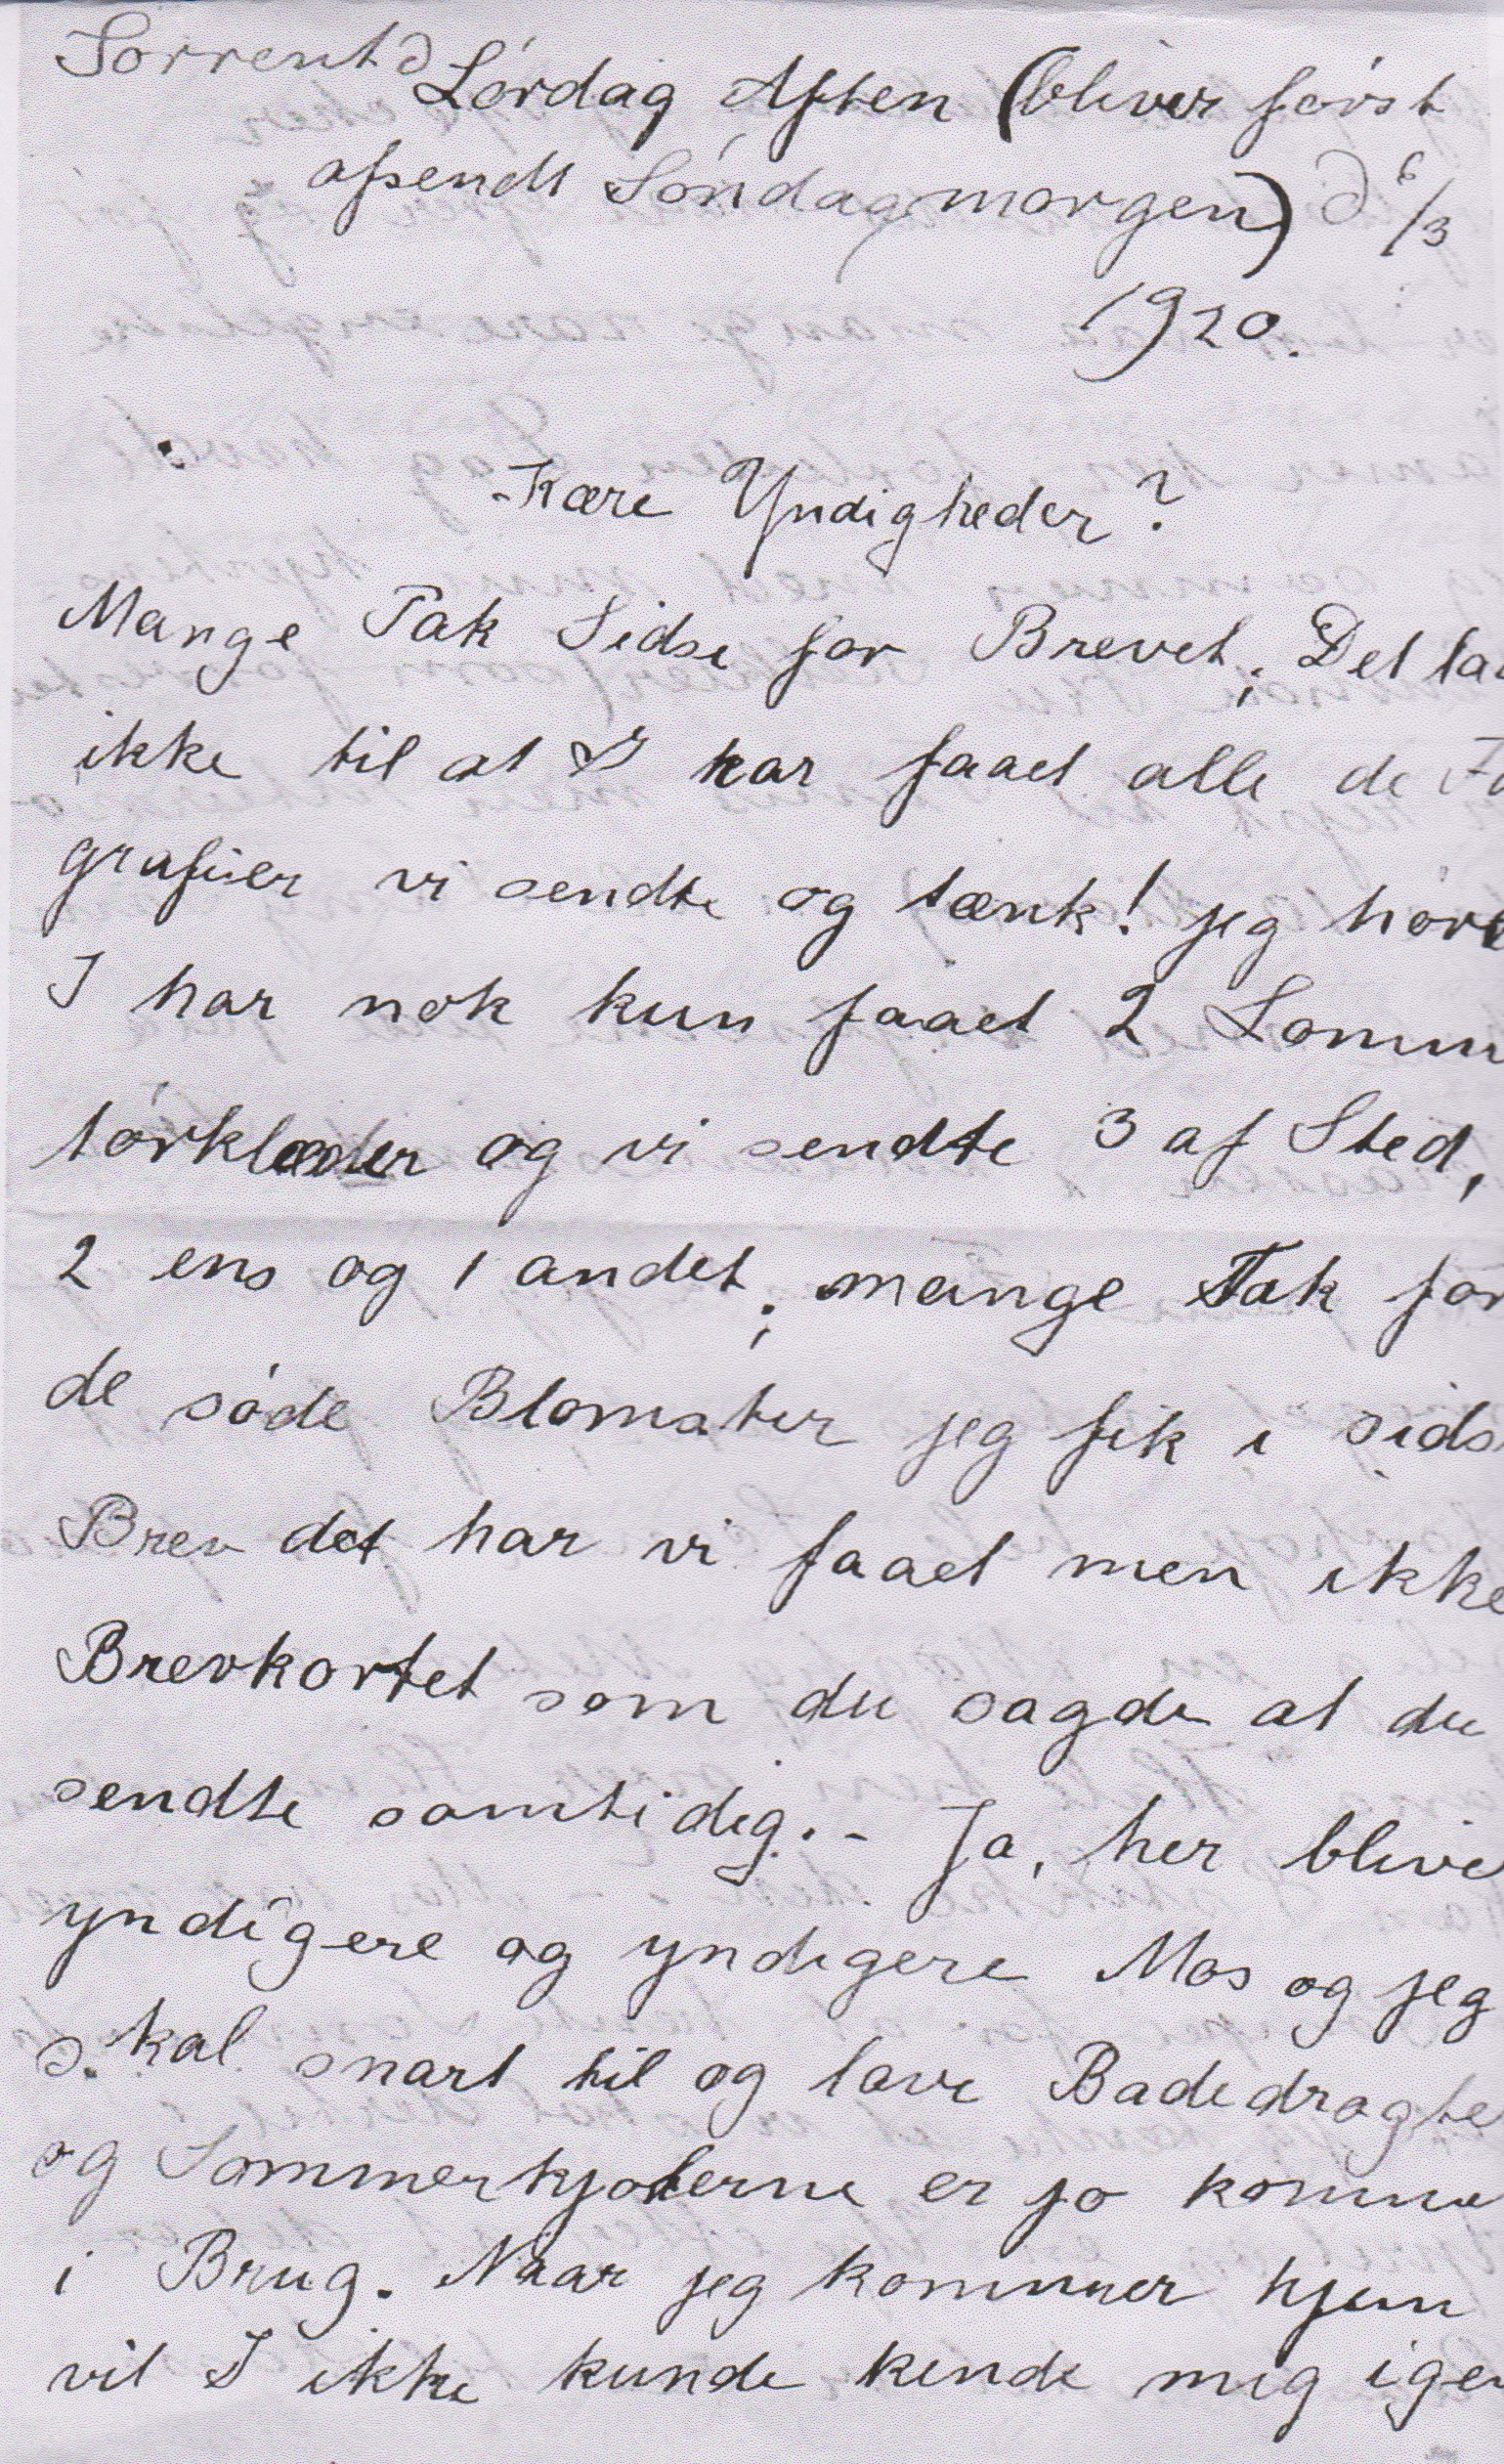 Sorrento
Lørdag Aften (bliver først
afsendt Søndagmorgen) d 6/3
1920.
Kære Yndigheder?
Mange Tak Sidse for Brevet; Det la
ikke til at I har faaet alle de Fo
grafier vi sendte og tænk! jeg høre
I har nok kun faaet 2 Lomm
tørklæder og vi sendte 3 af Sted,
2 ens og 1 andet; mange Tak for
de søde Blomster jeg fik i sids
Brev det har vi faaet men ikke
Brevkortet som du sagde at du
sendte samtidig. - Ja, her blive
yndigere og yndigere Mos og jeg
skal snart til og lave Badedragte
og Sommerkjolerne er jo komme
i Brug. Naar jeg kommer hjem
vil I ikke kunde kende mig igen